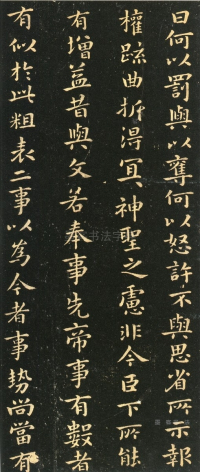 曰何以罰與以奪何以怒許不與思省所示報
權踈曲折得冝神聖之慮非今臣下所能
有增益昔與文若奉事先帝事有數者
有似於此粗表二事以為今者事勢尚當有